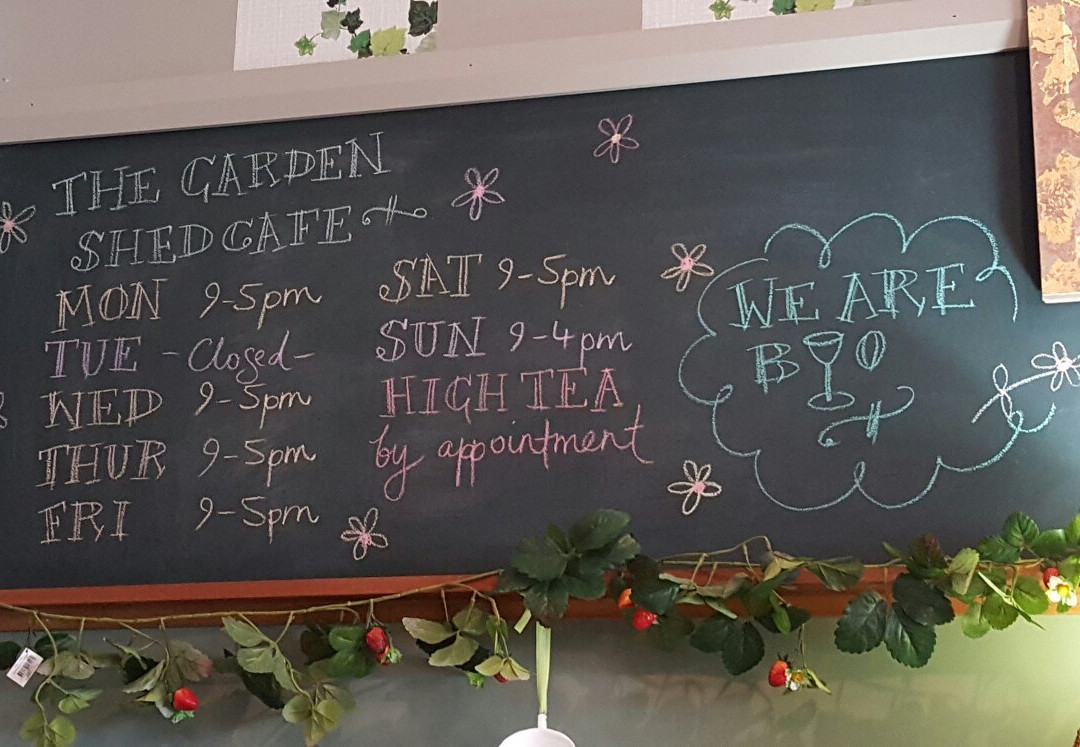 THE GARDEN
SHED CAFE
MON 9-5pm
TUE -Closed-
WED 9-5pm
THUR 9-5pm
FRI 9-5pm
SAT 9-5pm
SUN 9-4pm
HIGH TEA
by appointment
WE ARE
BYO